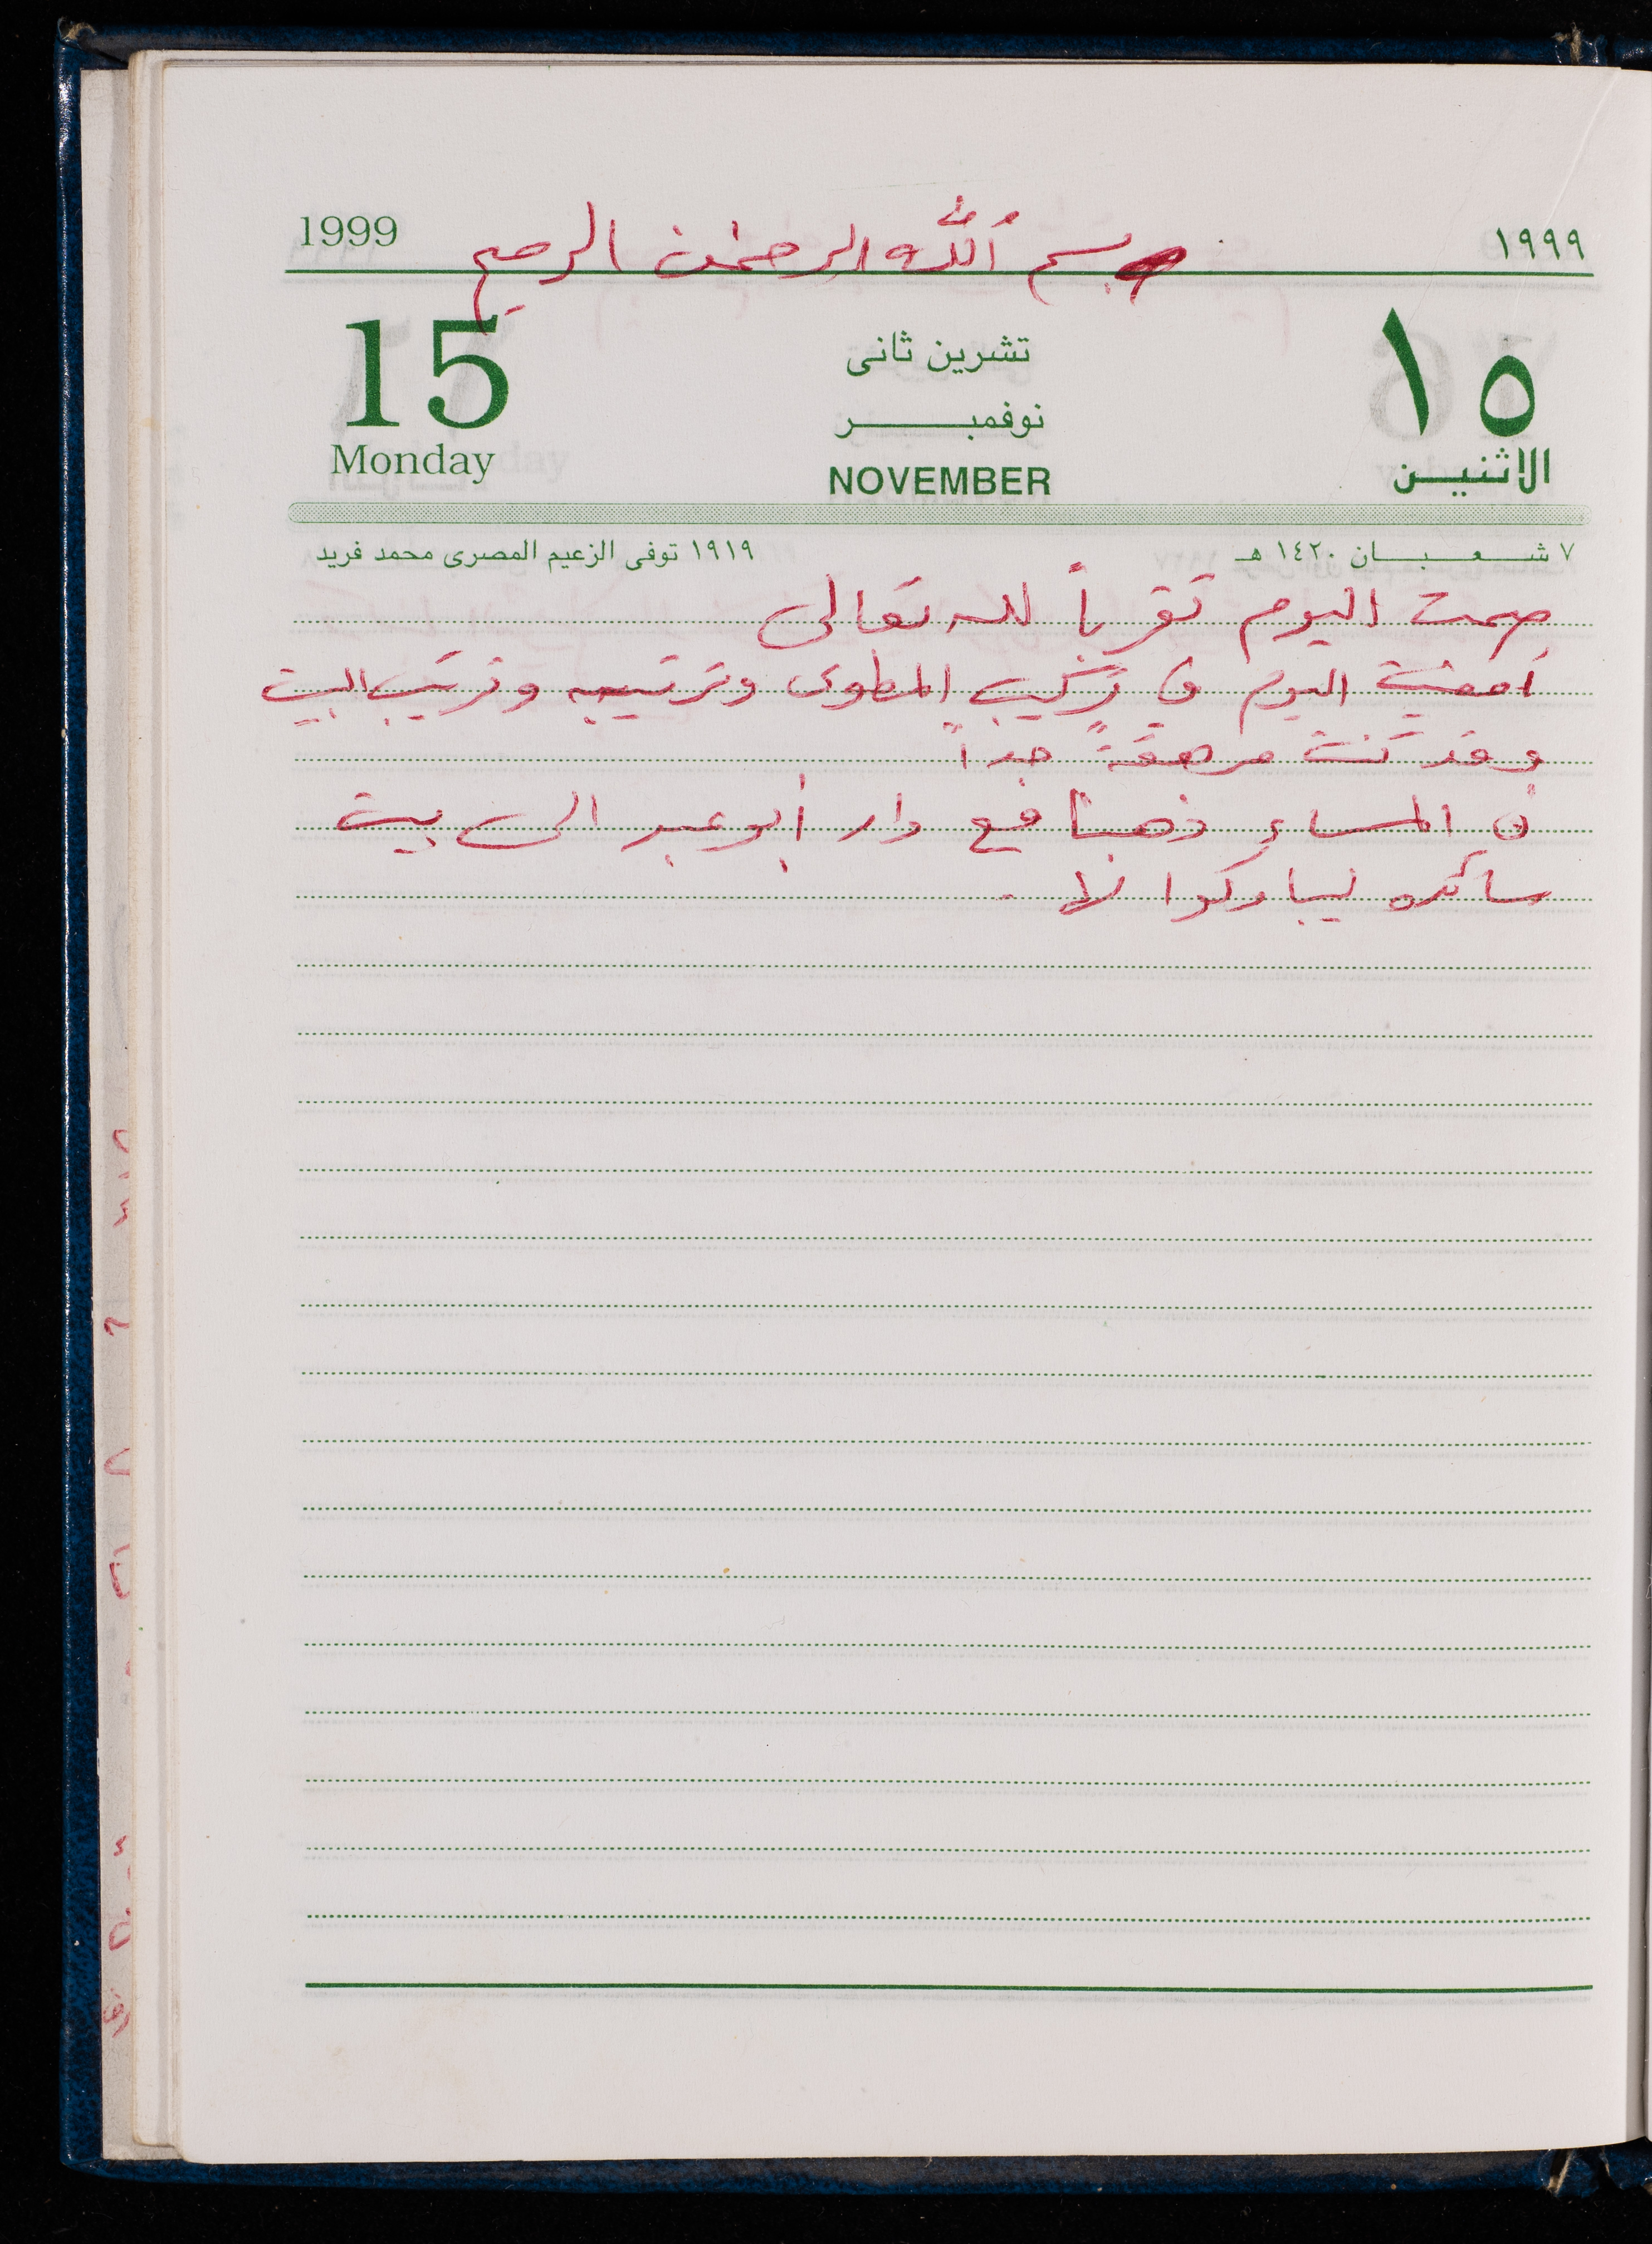 1999 بسم الله الرحمن الرحيم ١٩٩٩
15 تشرين ثانى ١٥
نوفمبر
Monday NOVEMBER الاثنين
٧ شعبان ١٤٢٠ هـ ١٩١٩ توفى الزعيم المصرى محمد فريد
صمت اليوم تقرباً لله تعالى
أمضيت اليوم في تركيب المطوى وترتيبه وترتيب البيت
وقد كنت مرهقةً جداً
في المساء ذهبنا مع دار أبو عبد الى بيت
سائده ليباركوا لها .